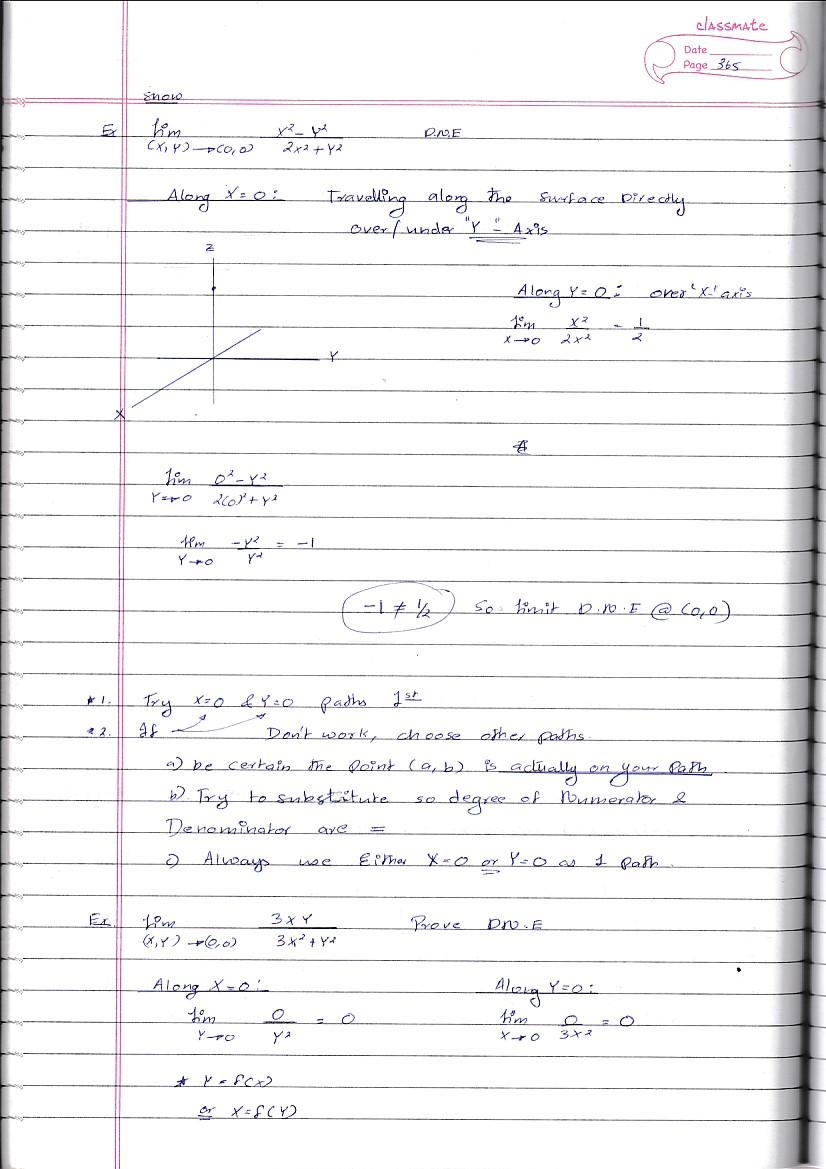 classmate
Date
Page 365
Show
Ex lim (X,Y)→(0,0) X²-Y² / 2X²+Y² D.N.E
Along X=0: Travelling along the surface Directly
over/under "Y" - Axis
Z
Y
X
Along Y=0: over 'X-' axis
lim X→0 X²/2X² = 1/2
lim Y→0 0²-Y² / 2(0)²+Y²
lim Y→0 -Y²/Y² = -1
-1 ≠ 1/2 So limit D.N.E @ (0,0)
*1. Try X=0 & Y=0 paths 1st
*2. If Don't work, choose other paths.
a) be certain the point (a,b) is actually on your Path
b) Try to substitute so degree of Numerator &
Denominator are =
c) Always use Either X=0 or Y=0 as 1 Path.
Ex. lim (X,Y)→(0,0) 3XY / 3X²+Y² Prove D.N.E
Along X=0:
lim Y→0 0/Y² = 0
Along Y=0:
lim X→0 0/3X² = 0
* Y=f(X)
or X=f(Y)